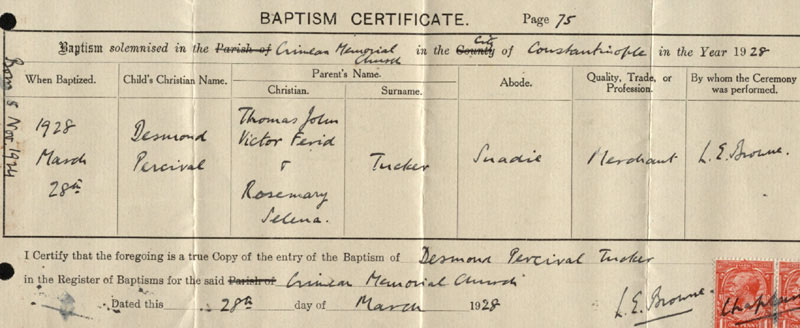 BAPTISM CERTIFICATE. Page 75
Baptism solemnised in the Parish of Crimean Memorial Church in the County City of Constantinople in the Year 1928
When Baptized.
Child's Christian Name.
Parent's Name.
Christian.
Surname.
Abode.
Quality, Trade, or
Profession.
By whom the Ceremony
was performed.
1928
March
28th
Desmond
Percival
Thomas John
Victor Ferid
&
Rosemary
Selena.
Tucker
Suadie
Merchant
L. E. Browne.
Born 5 Nov. 1924
I Certify that the foregoing is a true Copy of the entry of the Baptism of Desmond Percival Tucker
in the Register of Baptisms for the said Parish of Crimean Memorial Church
Dated this 28th day of March 1928
L. E. Browne. Chaplain